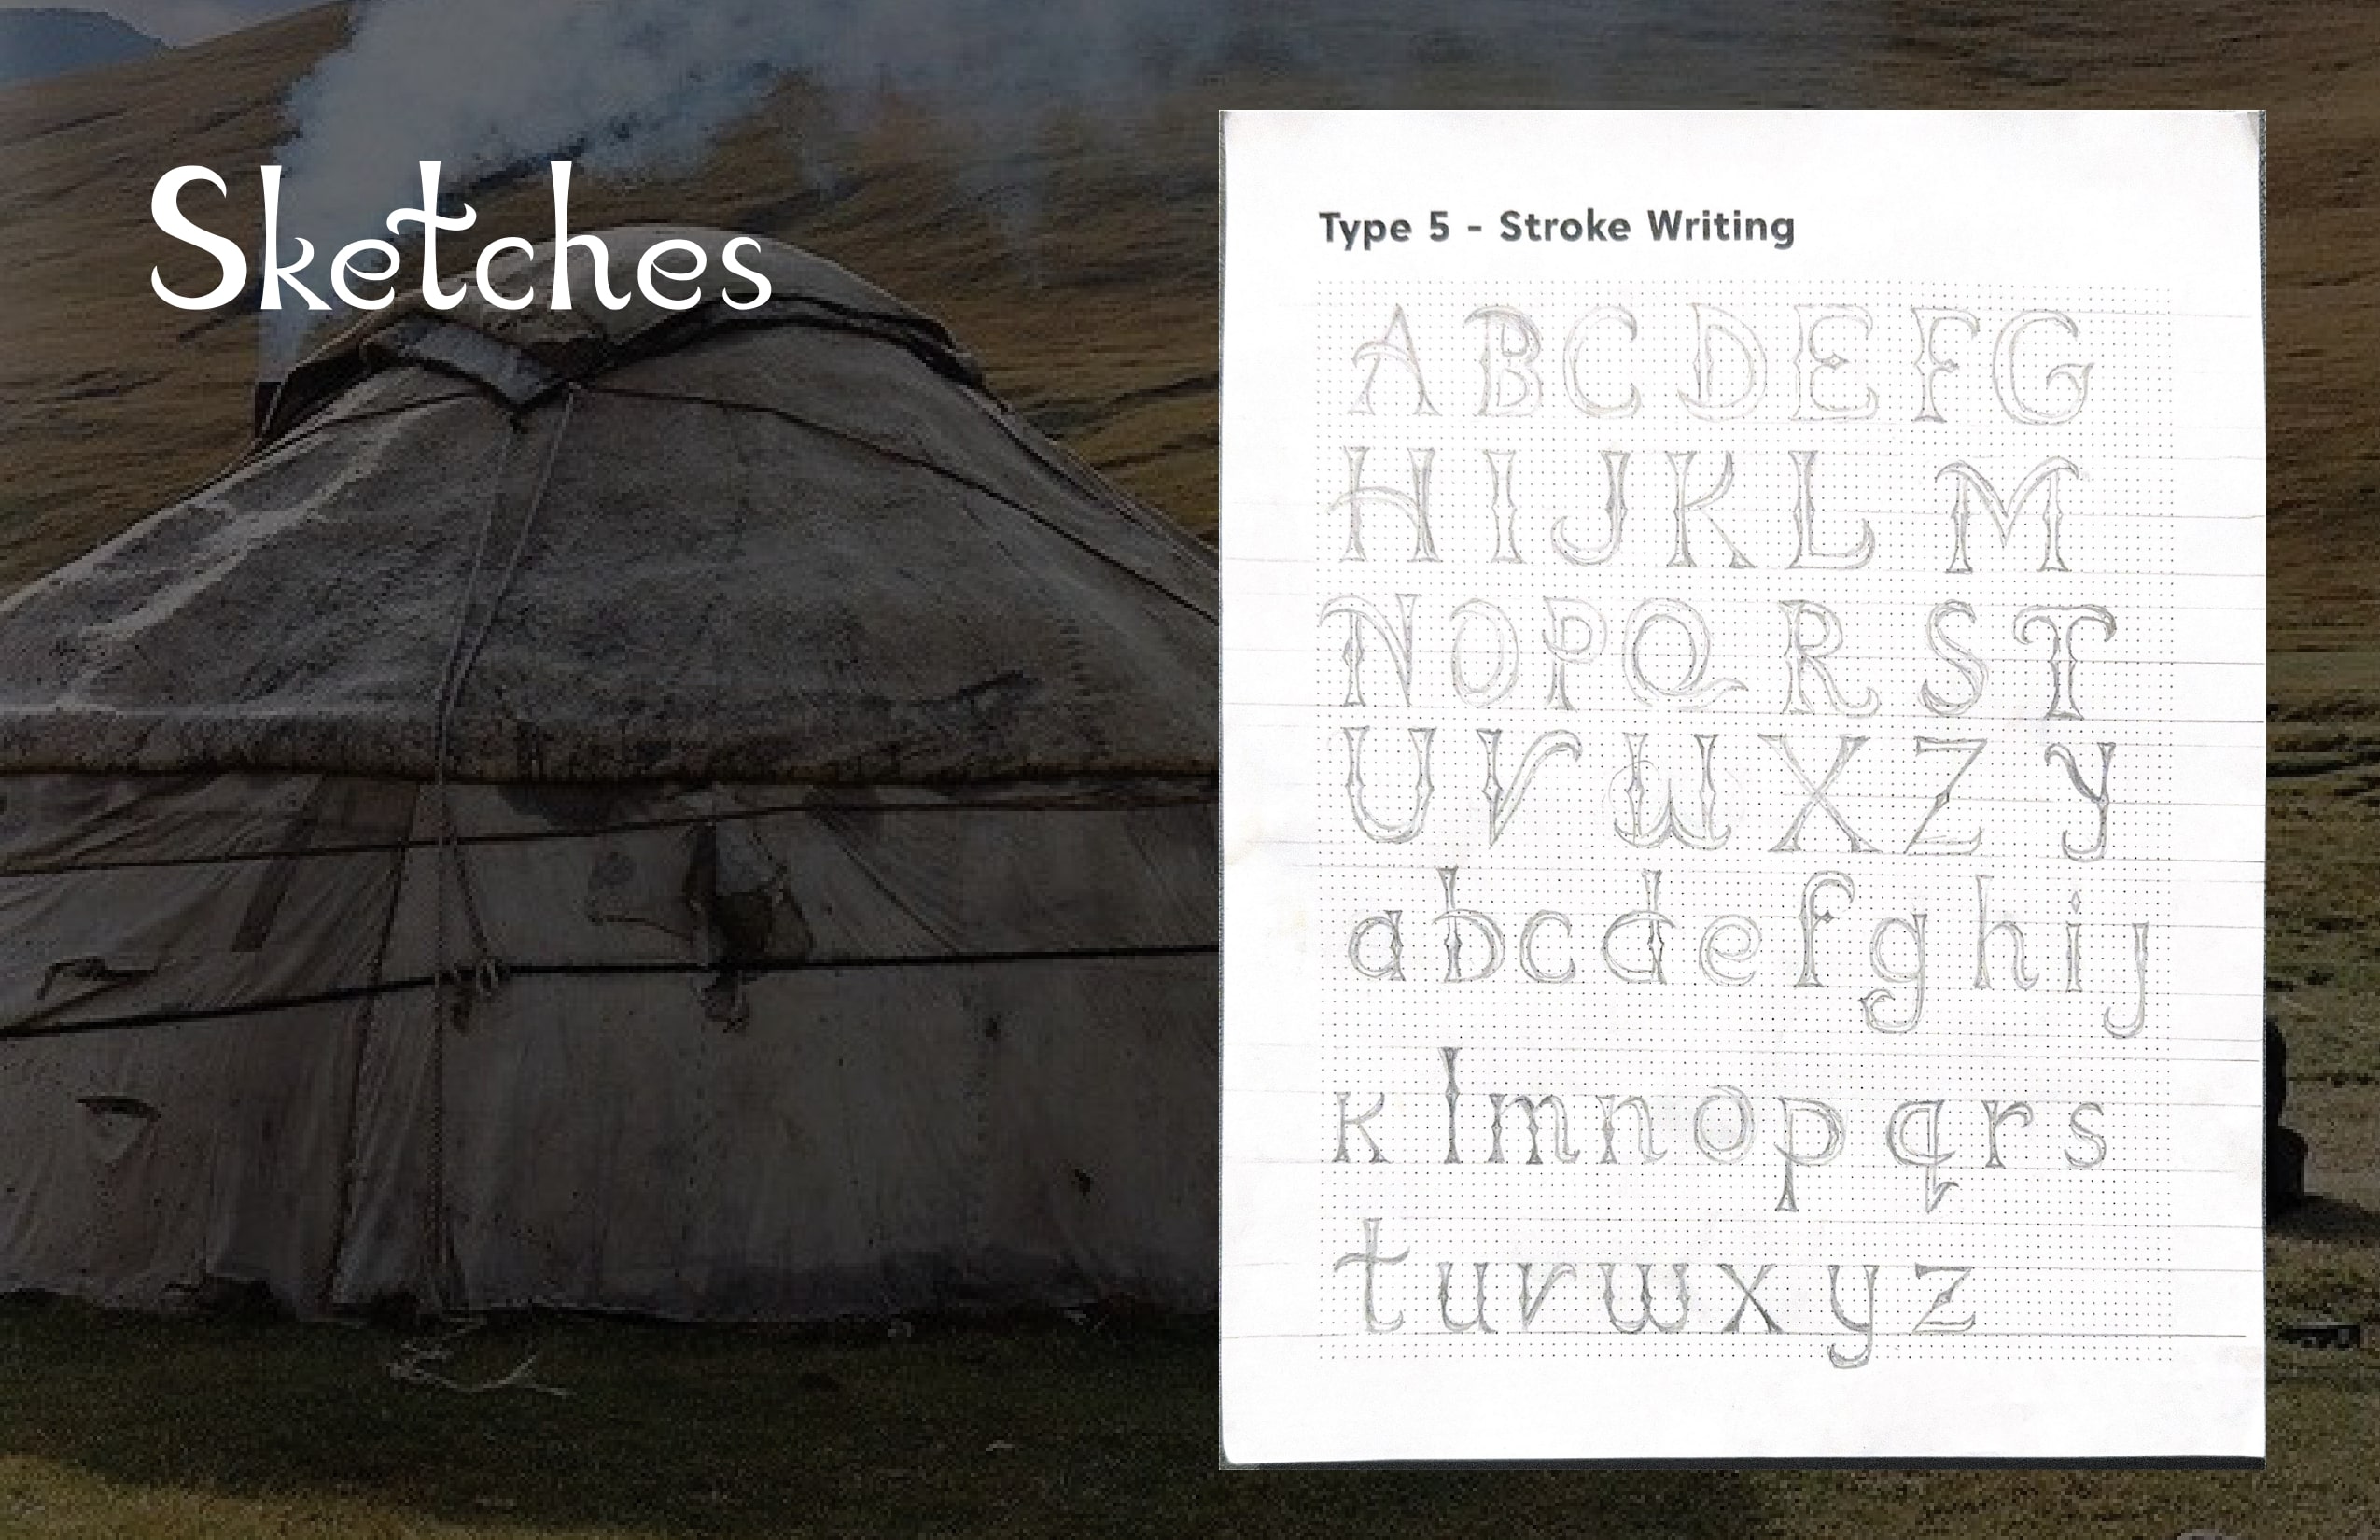 Sketches
Type 5 - Stroke Writing
A B C D E F G
H I J K L M
N O P Q R S T
U V W X Z Y
a b c d e f g h i j
k l m n o p q r s
t u v w x y z